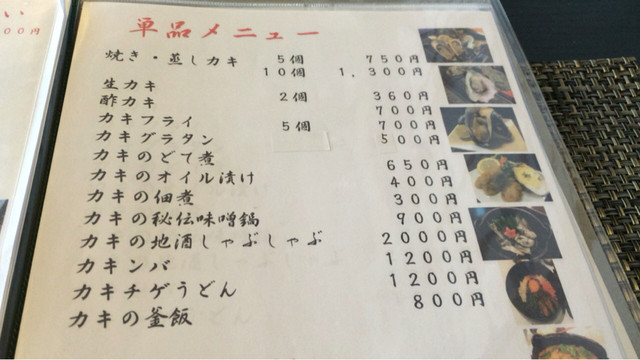 い
００円
単品メニュー
焼き・蒸しカキ ５個 ７５０円
１０個 １，３００円
生カキ ２個 ３６０円
酢カキ ７００円
カキフライ ５個 ７００円
カキグラタン ５００円
カキのどて煮 ６５０円
カキのオイル漬け ４００円
カキの佃煮 ３００円
カキの秘伝味噌鍋 ９００円
カキの地酒しゃぶしゃぶ ２０００円
カキンバ １２００円
カキチゲうどん １２００円
カキの釜飯 ８００円